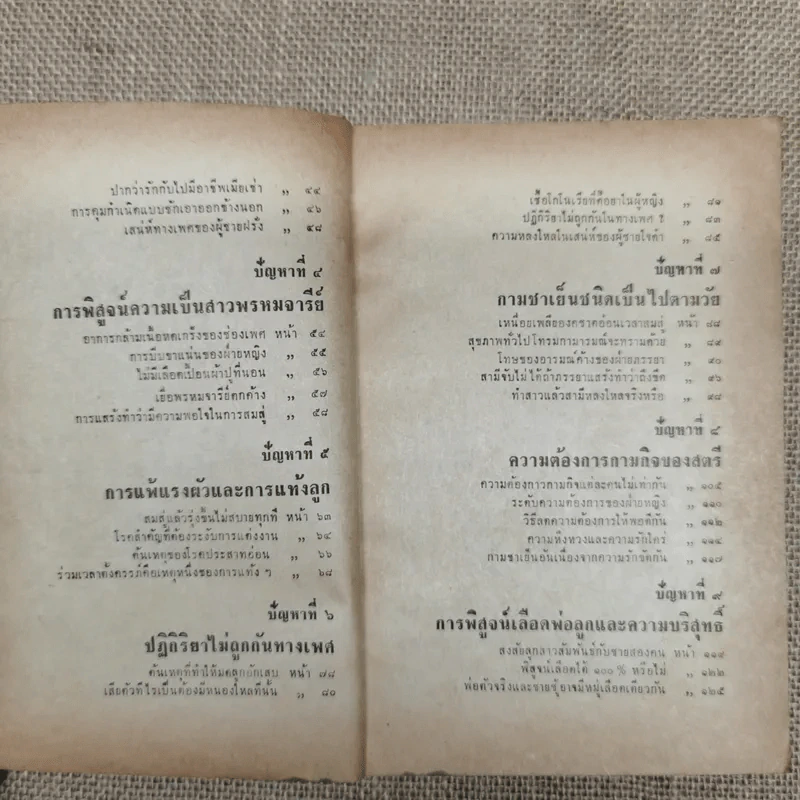 ปากว่ารักกับไปมีอาชีพเมียเช่า ,, ๔๔
การคุมกำเนิดแบบชักเอาออกข้างนอก ,, ๔๖
เสน่ห์ทางเพศของผู้ชายฝรั่ง ,, ๔๘
ปัญหาที่ ๔
การพิสูจน์ความเป็นสาวพรหมจารีย์
อาการกล้ามเนื้อหดเกร็งของช่องเพศ หน้า ๕๔
การบีบขาแน่นของฝ่ายหญิง ,, ๕๕
ไม่มีเลือดเปื้อนผ้าปูที่นอน ,, ๕๖
เยื่อพรหมจารีย์ตกค้าง ,, ๕๗
การแสร้งทำว่ามีความพอใจในการสมสู่ ,, ๕๘
ปัญหาที่ ๕
การแพ้แรงผัวและการแท้งลูก
สมสู่แล้วรุ่งขึ้นไม่สบายทุกที หน้า ๖๓
โรคสำคัญที่ต้องระงับการแต่งงาน ,, ๖๔
ต้นเหตุของโรคประสาทอ่อน ,, ๖๖
ร่วมเวลาตั้งครรภ์คือเหตุหนึ่งของการแท้ง ๆ ,, ๖๘
ปัญหาที่ ๖
ปฏิกิริยาไม่ถูกกันทางเพศ
ต้นเหตุที่ทำให้มดลูกอักเสบ หน้า ๗๘
เสียตัวทีไรเป็นต้องมีหนองไหลทีนั้น ,, ๘๐
เชื้อโกโนเรียที่ดื้อยาในผู้หญิง ,, ๘๑
ปฏิกิริยาไม่ถูกกันในทางเพศ ,, ๘๓
ความหลงใหลในเสน่ห์ของผู้ชายใจดำ ,, ๘๕
ปัญหาที่ ๗
กามชาเย็นชนิดเป็นไปตามวัย
เหนื่อยเพลียองคชาตอ่อนเวลาสมสู่ หน้า ๘๘
สุขภาพทั่วไปโทรมกามารมณ์จะทรามด้วย ,, ๘๙
โทษของอารมณ์ค้างของฝ่ายภรรยา ,, ๙๐
สามีจับไม่ได้ถ้าภรรยาแสร้งทำว่าถึงขีด ,, ๙๖
ทำสาวแล้วสามีหลงใหลจริงหรือ ,, ๙๘
ปัญหาที่ ๘
ความต้องการกามกิจของสตรี
ความต้องการกามกิจแต่ละคนไม่เท่ากัน ,, ๑๐๕
ระดับความต้องการของฝ่ายหญิง ,, ๑๑๐
วิธีลดความต้องการให้พอดีกัน ,, ๑๑๒
ความหึงหวงและความรักใคร่ ,, ๑๑๔
กามชาเย็นอันเนื่องจากความรักขัดกัน ,, ๑๑๗
ปัญหาที่ ๙
การพิสูจน์เลือดพ่อลูกและความบริสุทธิ์
สงสัยลูกลาวสัมพันธ์กับชายสองคน หน้า ๑๑๙
พิสูจน์เลือดได้ ๑๐๐ % หรือไม่ ,, ๑๒๒
พ่อตัวจริงและชายชู้อาจมีหมู่เลือดเดียวกัน ,, ๑๒๕